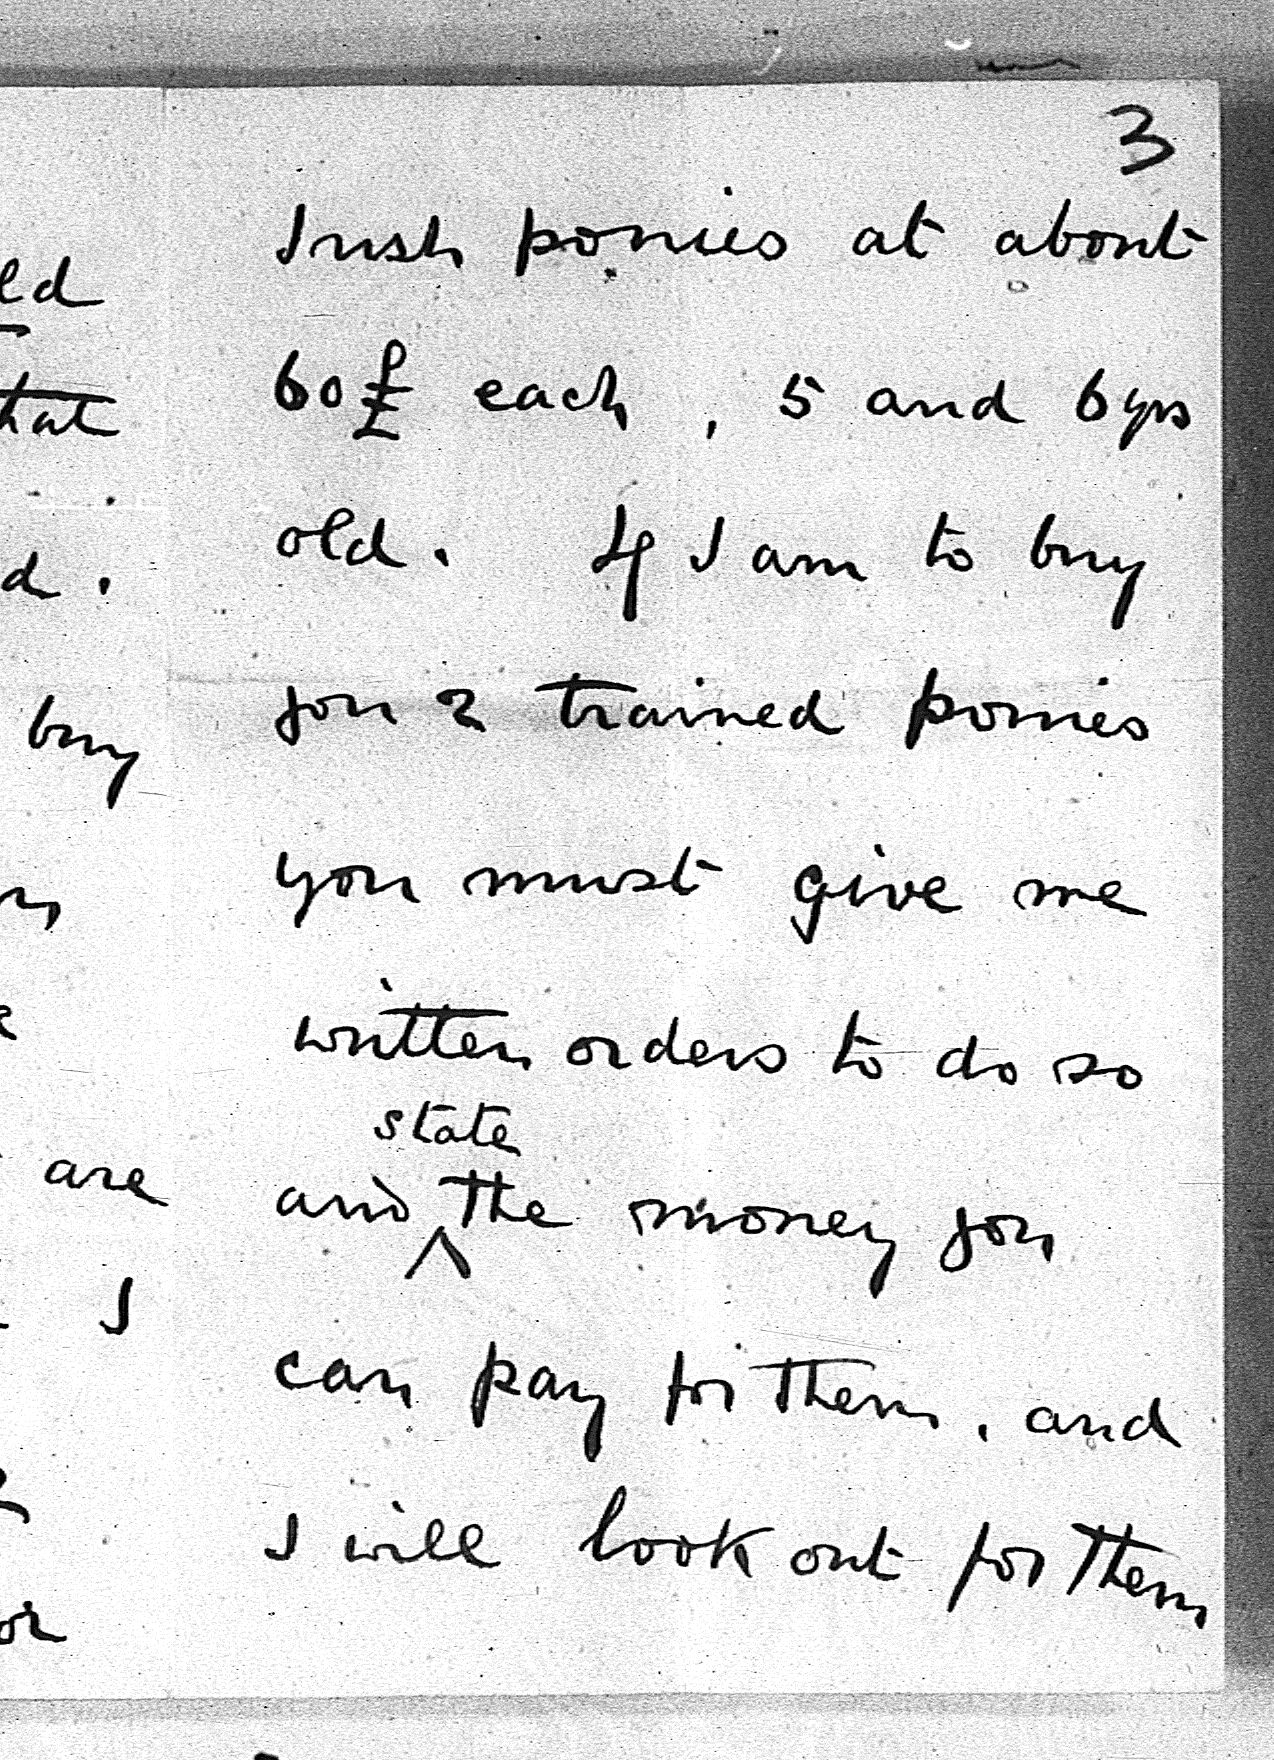 3
Irish ponies at about
60£ each, 5 and 6 yrs
old. If I am to buy
you 2 trained ponies
you must give me
written orders to do so
state
and ^ the money you
can pay for them, and
I will look out for them
ld
hat
d.
buy
are
I
or